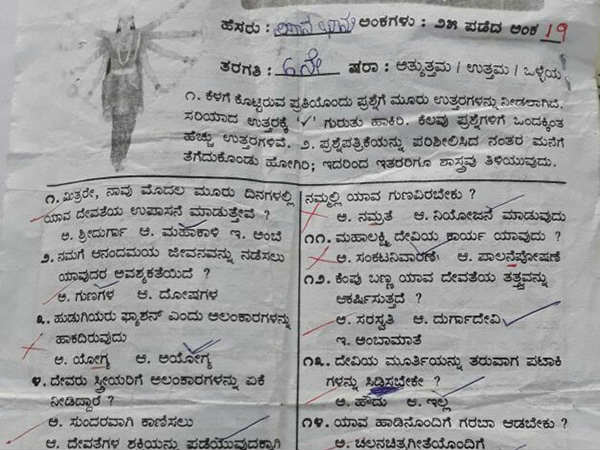 ಹೆಸರು : ಅಂಕಗಳು : ೨೫ ಪಡೆದ ಅಂಕ 19
ತರಗತಿ : 6ನೇ ಷರಾ : ಅತ್ಯುತ್ತಮ / ಉತ್ತಮ / ಒಳ್ಳೆಯ
೧. ಕೆಳಗೆ ಕೊಟ್ಟಿರುವ ಪ್ರತಿಯೊಂದು ಪ್ರಶ್ನೆಗೆ ಮೂರು ಉತ್ತರಗಳನ್ನು ನೀಡಲಾಗಿದೆ.
ಸರಿಯಾದ ಉತ್ತರಕ್ಕೆ '✓' ಗುರುತು ಹಾಕಿರಿ. ಕೆಲವು ಪ್ರಶ್ನೆಗಳಿಗೆ ಒಂದಕ್ಕಿಂತ
ಹೆಚ್ಚು ಉತ್ತರಗಳಿವೆ. ೨. ಪ್ರಶ್ನೆಪತ್ರಿಕೆಯನ್ನು ಪರಿಶೀಲಿಸಿದ ನಂತರ ಮನೆಗೆ
ತೆಗೆದುಕೊಂಡು ಹೋಗಿರಿ; ಇದರಿಂದ ಇತರರಿಗೂ ಶಾಸ್ತ್ರವು ತಿಳಿಯುವುದು.
೧. ಮಿತ್ರರೇ, ನಾವು ಮೊದಲ ಮೂರು ದಿನಗಳಲ್ಲಿ
ಯಾವ ದೇವತೆಯ ಉಪಾಸನೆ ಮಾಡುತ್ತೇವೆ ?
ಅ. ಶ್ರೀದುರ್ಗಾ ಆ. ಮಹಾಕಾಳಿ ಇ. ಅಂಬೆ
೨. ನಮಗೆ ಆನಂದಮಯ ಜೀವನವನ್ನು ನಡೆಸಲು
ಯಾವುದರ ಅವಶ್ಯಕತೆಯಿದೆ ?
ಅ. ಗುಣಗಳ ಆ. ದೋಷಗಳ
೩. ಹುಡುಗಿಯರು ಫ್ಯಾಶನ್ ಎಂದು ಅಲಂಕಾರಗಳನ್ನು
ಹಾಕದಿರುವುದು
ಅ. ಯೋಗ್ಯ ಆ. ಅಯೋಗ್ಯ
೪. ದೇವರು ಸ್ತ್ರೀಯರಿಗೆ ಅಲಂಕಾರಗಳನ್ನು ಏಕೆ
ನೀಡಿದ್ದಾರೆ ?
ಅ. ಸುಂದರವಾಗಿ ಕಾಣಿಸಲು
ಆ. ದೇವತೆಗಳ ಶಕ್ತಿಯನ್ನು ಪಡೆಯುವುದಕ್ಕಾಗಿ
ನಮ್ಮಲ್ಲಿ ಯಾವ ಗುಣವಿರಬೇಕು ?
ಅ. ನಮ್ರತೆ ಆ. ನಿಯೋಜನೆ ಮಾಡುವುದು
೧೧. ಮಹಾಲಕ್ಷ್ಮಿ ದೇವಿಯ ಕಾರ್ಯ ಯಾವುದು ?
ಅ. ಸಂಕಟನಿವಾರಣೆ ಆ. ಪಾಲನೆಪೋಷಣೆ
೧೨. ಕೆಂಪು ಬಣ್ಣ ಯಾವ ದೇವತೆಯ ತತ್ತ್ವವನ್ನು
ಆಕರ್ಷಿಸುತ್ತದೆ ?
ಅ. ಸರಸ್ವತಿ ಆ. ದುರ್ಗಾದೇವಿ
ಇ. ಅಂಬಾಮಾತೆ
೧೩. ದೇವಿಯ ಮೂರ್ತಿಯನ್ನು ತರುವಾಗ ಪಟಾಕಿ
ಗಳನ್ನು ಸಿಡಿಸಬೇಕೇ ?
ಅ. ಹೌದು ಆ. ಇಲ್ಲ
೧೪. ಯಾವ ಹಾಡಿನೊಂದಿಗೆ ಗರಬಾ ಆಡಬೇಕು ?
ಅ. ಚಲನಚಿತ್ರಗೀತೆಯೊಂದಿಗೆ